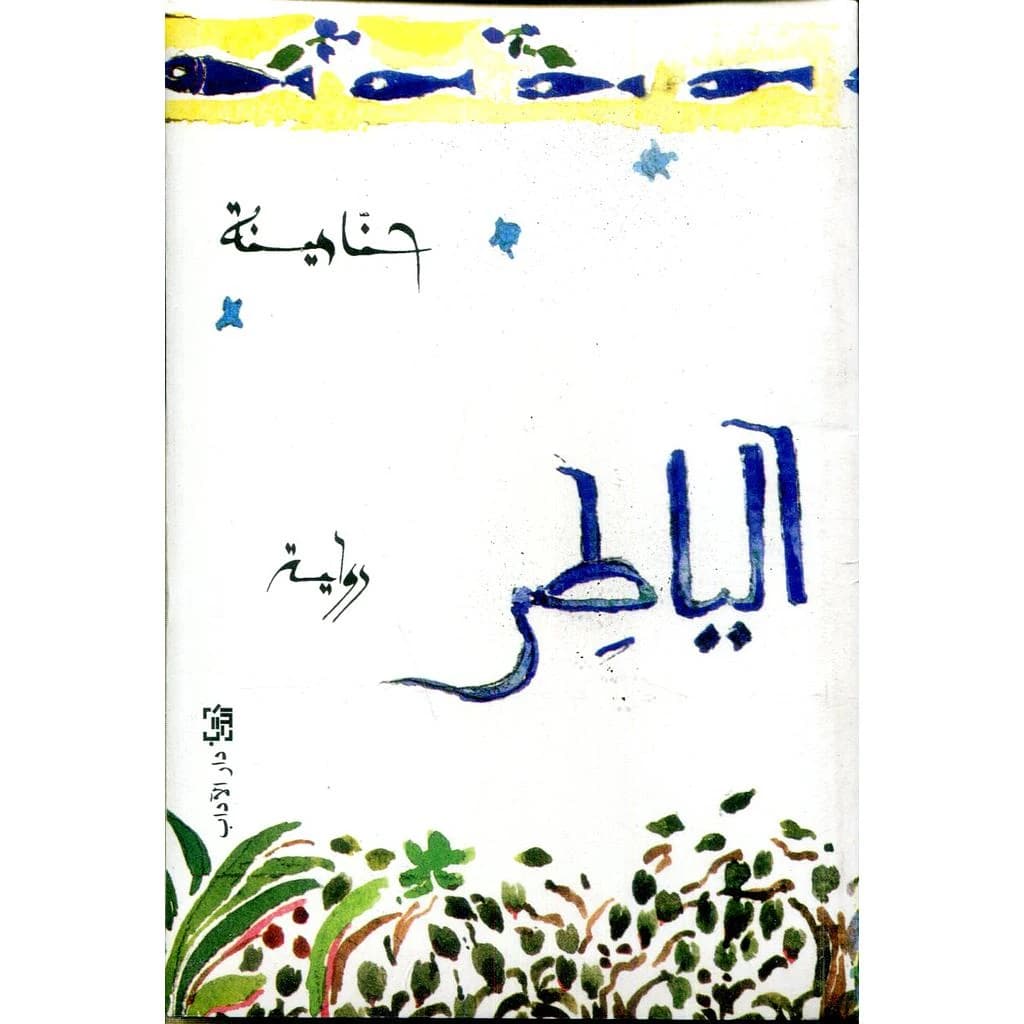 حنّا مينُة
الياطِر
رواية
دار الآداب